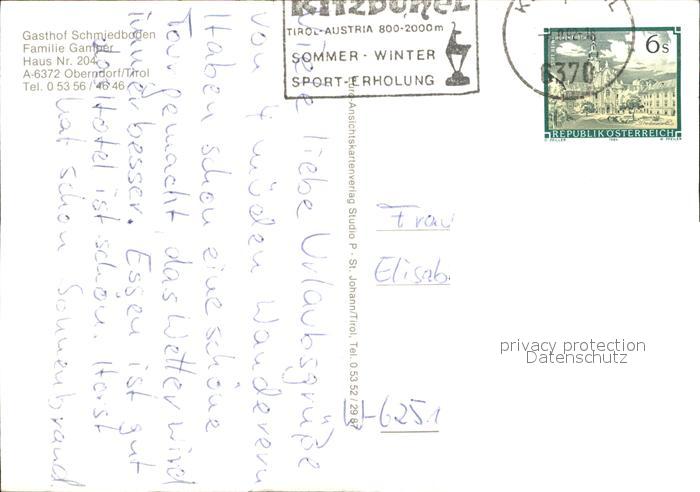 Gasthof Schmiedbogen
Familie Gamper
Haus Nr. 204
A-6372 Oberndorf/Tirol
Tel. 0 53 56 / 46 46
Kitzbühel
TIROL-AUSTRIA 800-2000m
SOMMER - WINTER
SPORT-ERHOLUNG
6370
6s
REPUBLIK ÖSTERREICH
liebe Urlaubsgrüße
von 4 müden Wanderern
Haben schon eine schöne
Tour gemacht, das Wetter wird
immer besser. Essen ist gut
Hotel ist schön. Horst
hat schon Sonnenbrand
Tirol-Ansichtskartenverlag Studio P · St. Johann/Tirol, Tel. 0 53 52 / 29 87
Frau
Elisab.
W-6251
privacy protection
Datenschutz